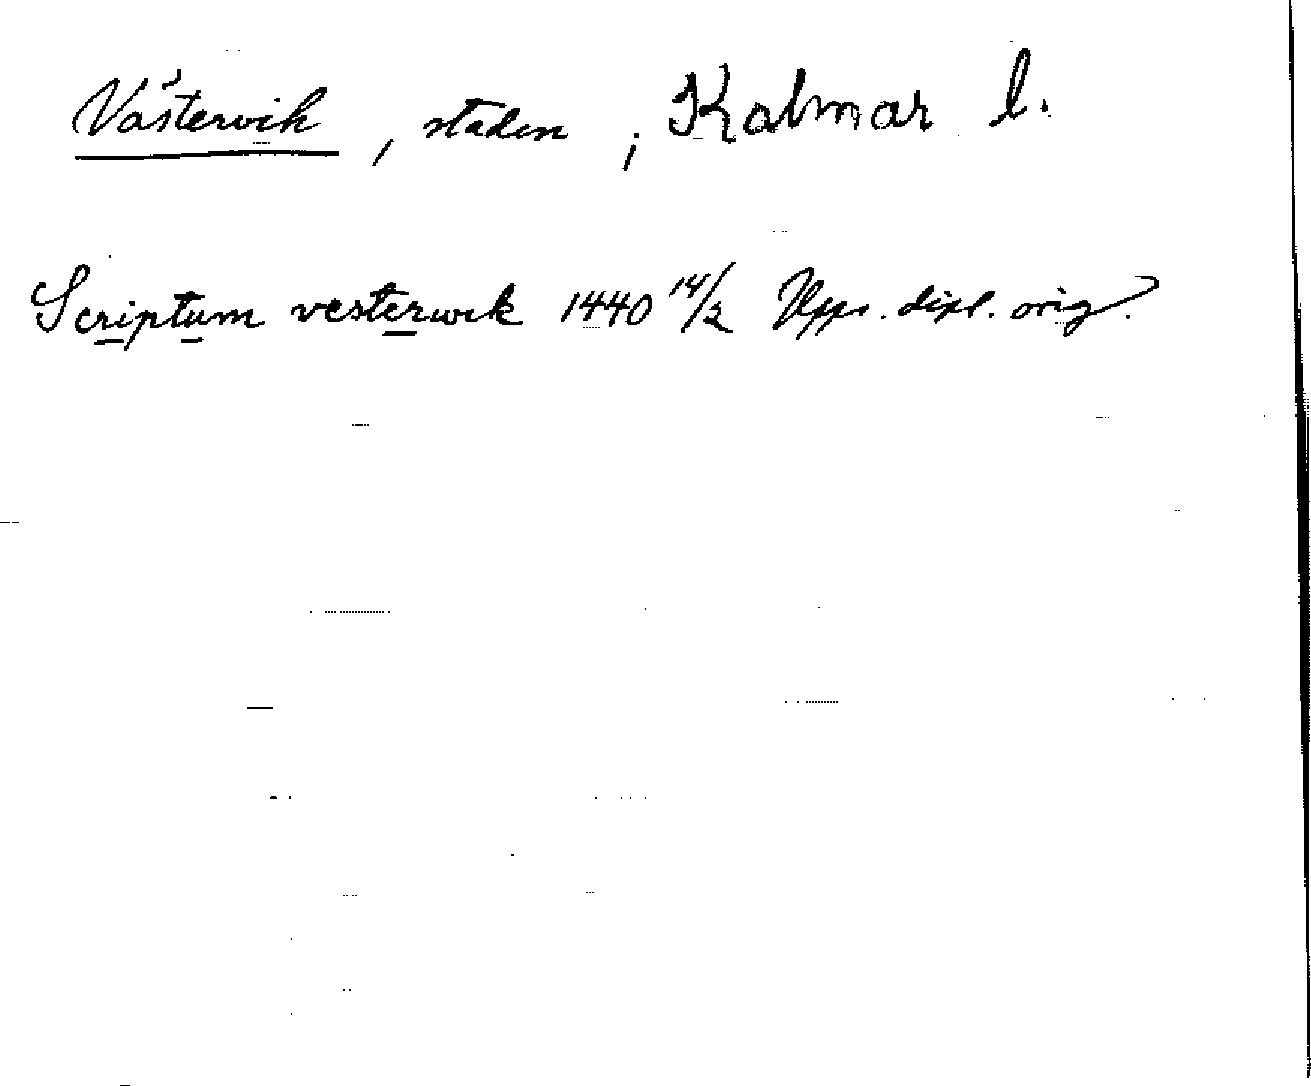 Västervik, staden, Kalmar l.
Scriptum vesterwik 1440 14/2 Upps. dipl. orig.